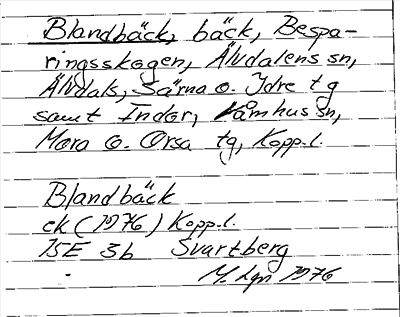 Blandbäck, bäck, Bespa-
ringsskogen, Älvdalens sn,
Älvdals, Särna o. Idre tg
samt Indor, Våmhus sn,
Mora o. Orsa tg, Kopp.l.
Blandbäck
ek (1976) Kopp.l.
15E 3b Svartberg
M. Lgn 1976